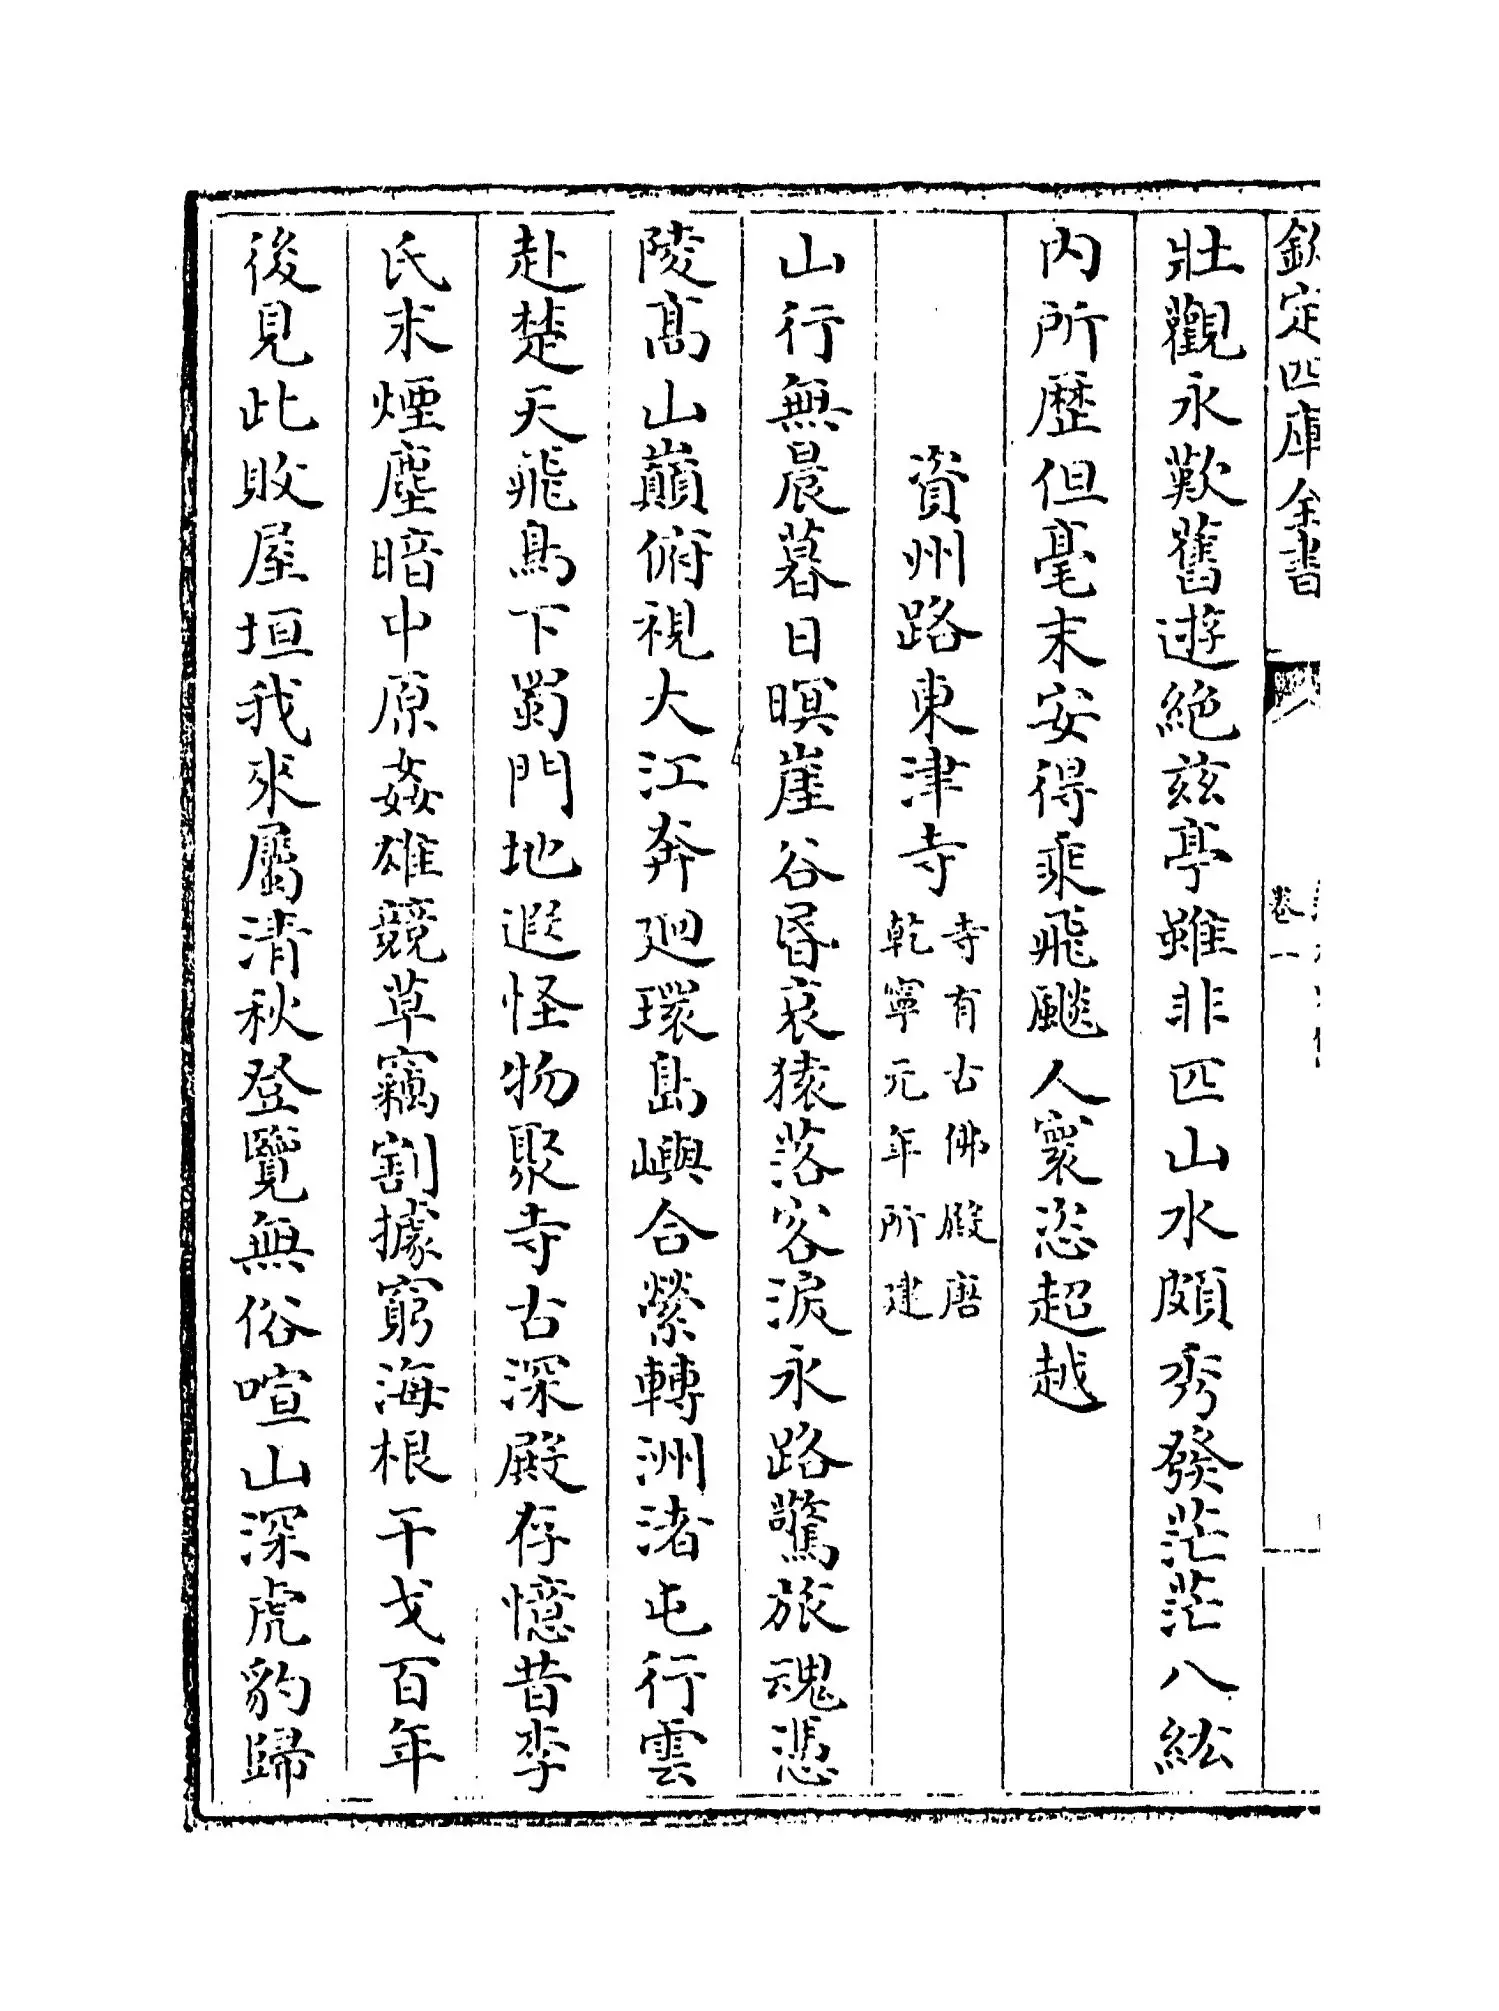 欽定四庫全書
卷一
壯觀永歎舊遊絶兹亭雖非匹山水頗秀發茫茫八紘
内所歷但毫末安得乘飛飈人寰恣超越
資州路東津寺
寺有古佛殿唐
乾寧元年所建
山行無晨暮日暝崖谷昏哀猿落客淚永路驚旅魂憑
陵高山巔俯視大江奔廻環島嶼合縈轉洲渚屯行雲
赴楚天飛鳥下蜀門地遐怪物聚寺古深殿存憶昔李
氏末煙塵暗中原姦雄競草竊割據窮海根干戈百年
後見此敗屋垣我來屬清秋登覽無俗喧山深虎豹歸